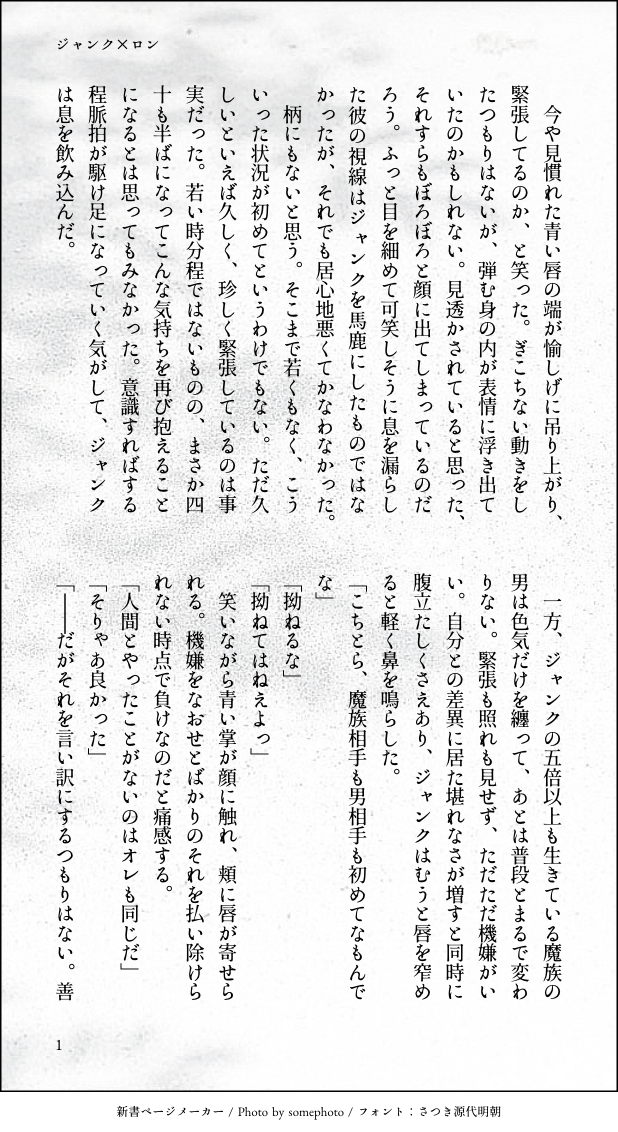 ジャンク×ロン
　今や見慣れた青い唇の端が愉しげに吊り上がり、
緊張してるのか、と笑った。ぎこちない動きをし
たつもりはないが、弾む身の内が表情に浮き出て
いたのかもしれない。見透かされていると思った、
それすらもぼろぼろと顔に出てしまっているのだ
ろう。ふっと目を細めて可笑しそうに息を漏らし
た彼の視線はジャンクを馬鹿にしたものではな
かったが、それでも居心地悪くてかなわなかった。
　柄にもないと思う。そこまで若くもなく、こう
いった状況が初めてというわけでもない。ただ久
しいといえば久しく、珍しく緊張しているのは事
実だった。若い時分程ではないものの、まさか四
十も半ばになってこんな気持ちを再び抱えること
になるとは思ってもみなかった。意識すればする
程脈拍が駆け足になっていく気がして、ジャンク
は息を飲み込んだ。
　一方、ジャンクの五倍以上も生きている魔族の
男は色気だけを纏って、あとは普段とまるで変わ
りない。緊張も照れも見せず、ただただ機嫌がい
い。自分との差異に居た堪れなさが増すと同時に
腹立たしくさえあり、ジャンクはむうと唇を窄め
ると軽く鼻を鳴らした。
「こちとら、魔族相手も男相手も初めてなもんで
な」
「拗ねるな」
「拗ねてはねえよっ」
　笑いながら青い掌が顔に触れ、頬に唇が寄せら
れる。機嫌をなおせとばかりのそれを払い除けら
れない時点で負けなのだと痛感する。
「人間とやったことがないのはオレも同じだ」
「そりゃあ良かった」
「――だがそれを言い訳にするつもりはない。善
1
新書ページメーカー / Photo by somephoto / フォント：さつき源代明朝